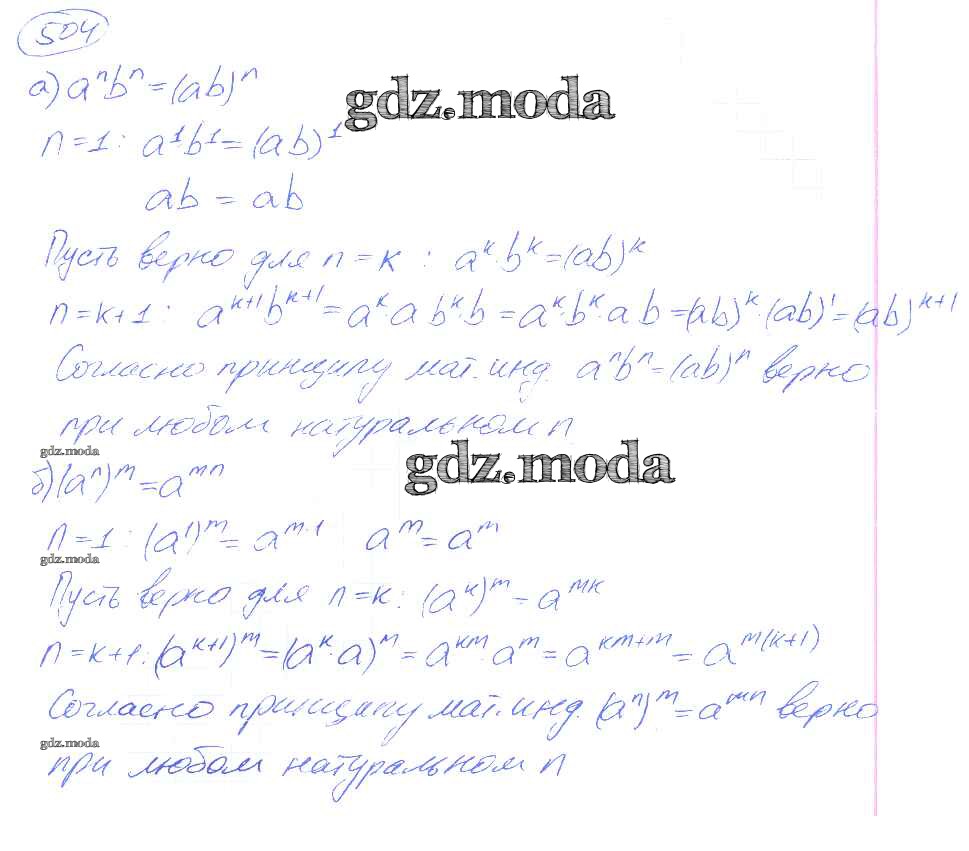 504
а) aⁿbⁿ = (ab)ⁿ
gdz.moda
n = 1 : a¹b¹ = (ab)¹
ab = ab
Пусть верно для n = k : aᵏ·bᵏ = (ab)ᵏ
n = k+1 : aᵏ⁺¹bᵏ⁺¹ = aᵏ·a bᵏ·b = aᵏ·bᵏ·a b = (ab)ᵏ·(ab)¹ = (ab)ᵏ⁺¹
Согласно принципу мат. инд. aⁿbⁿ = (ab)ⁿ верно
при любом натуральном n
gdz.moda
gdz.moda
б) (aⁿ)ᵐ = aᵐⁿ
n = 1 : (a¹)ᵐ = aᵐ·¹ aᵐ = aᵐ
gdz.moda
Пусть верно для n = k : (aᵏ)ᵐ = aᵐᵏ
n = k+1 : (aᵏ⁺¹)ᵐ = (aᵏ·a)ᵐ = aᵏᵐ·aᵐ = aᵏᵐ⁺ᵐ = aᵐ⁽ᵏ⁺¹⁾
Согласно принципу мат. инд. (aⁿ)ᵐ = aᵐⁿ верно
gdz.moda
при любом натуральном n